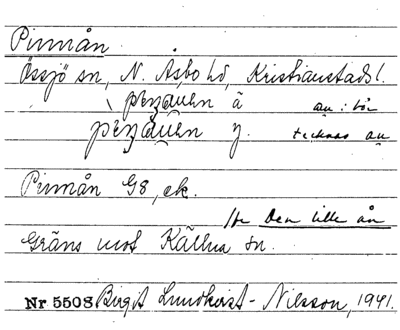 Pinnån
Össjö sn, N. Åsbo hd, Kristianstads l.
ä au: bör
y. tecknas au
Pinnån G8, ek.
se Den lille ån
Gräns mot Källna sn.
Nr 5508 Birgit Lundkvist-Nilsson, 1941.